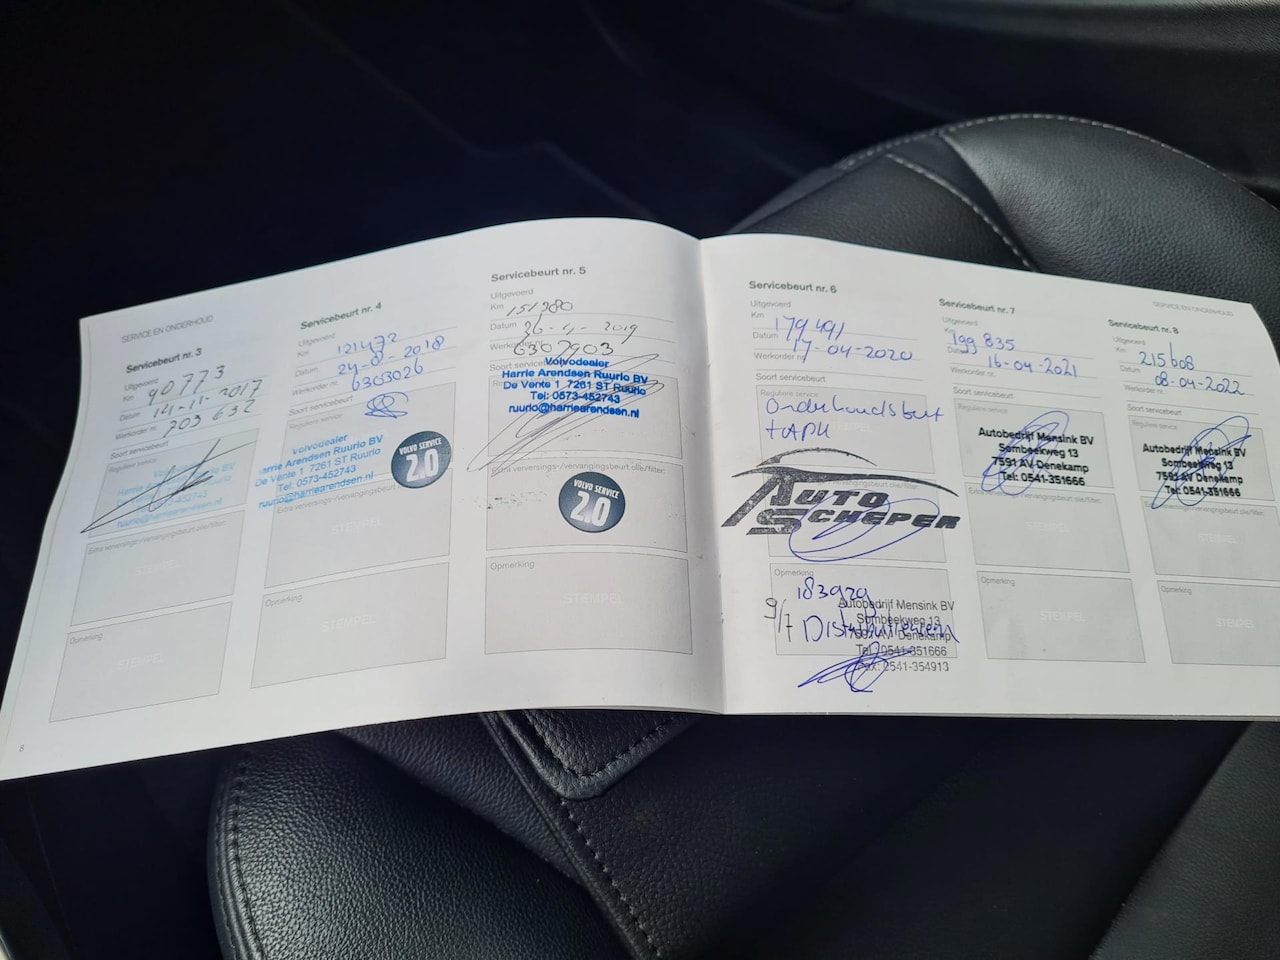 SERVICE EN ONDERHOUD
Servicebeurt nr. 3
Uitgevoerd
Km 90773
Datum 14-11-2017
Werkorder nr. 203 632
Soort servicebeurt
Reguliere service
Harrie Arendsen Ruurlo BV
De Vente 1 7261 ST Ruurlo
Tel: 0573-452743
ruurlo@harriearendsen.nl
Extra verversings-/vervangingsbeurt olie/filter:
STEMPEL
Opmerking
STEMPEL
8
Servicebeurt nr. 4
Uitgevoerd
Km 121472
Datum 24-08-2018
Werkorder nr. 6303026
Soort servicebeurt
Reguliere service
Volvodealer
Harrie Arendsen Ruurlo BV
De Vente 1 7261 ST Ruurlo
Tel: 0573-452743
ruurlo@harriearendsen.nl
VOLVO SERVICE
2.0
Extra verversings-/vervangingsbeurt olie/filter:
STEMPEL
Opmerking
STEMPEL
Servicebeurt nr. 5
Uitgevoerd
Km 151380
Datum 26-4-2019
Werkorder nr. 6307903
Soort servicebeurt
Volvodealer
Harrie Arendsen Ruurlo BV
De Vente 1 7261 ST Ruurlo
Tel: 0573-452743
ruurlo@harriearendsen.nl
Extra verversings-/vervangingsbeurt olie/filter:
VOLVO SERVICE
2.0
Opmerking
STEMPEL
Servicebeurt nr. 6
Uitgevoerd
Km 179491
Datum 17-04-2020
Werkorder nr.
Soort servicebeurt
Onderhoudsbeurt
+APK
AUTO
SCHEPER
Opmerking
183929
9/7 Distributieriem
Autobedrijf Mensink BV
Sombeekweg 13
7591 AV Denekamp
Tel: 0541-351666
Fax: 0541-354913
SERVICE EN ONDERHOUD
Servicebeurt nr. 7
Uitgevoerd
Km 199 835
Datum 16-04-2021
Werkorder nr.
Soort servicebeurt
Reguliere service
Autobedrijf Mensink BV
Sombeekweg 13
7591 AV Denekamp
Tel: 0541-351666
Extra verversings-/vervangingsbeurt olie/filter:
STEMPEL
Opmerking
STEMPEL
Servicebeurt nr. 8
Uitgevoerd
Km 215608
Datum 08-04-2022
Werkorder nr.
Soort servicebeurt
Reguliere service
Autobedrijf Mensink BV
Sombeekweg 13
7591 AV Denekamp
Tel: 0541-351666
Extra verversings-/vervangingsbeurt olie/filter:
STEMPEL
Opmerking
STEMPEL